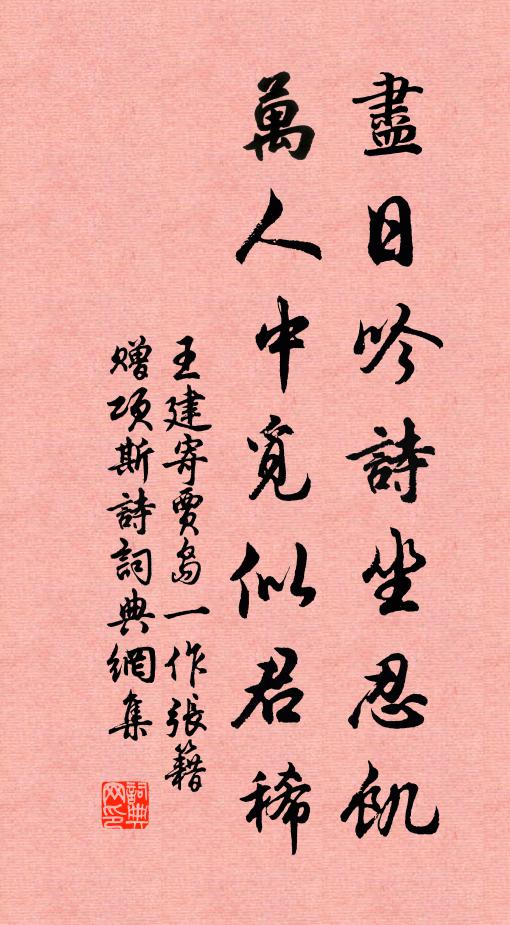 盡日吟詩坐忍飢
萬人中覓似君稀
王建寄賈島一作張籍
贈項斯詩詞典網集
詞典
网印